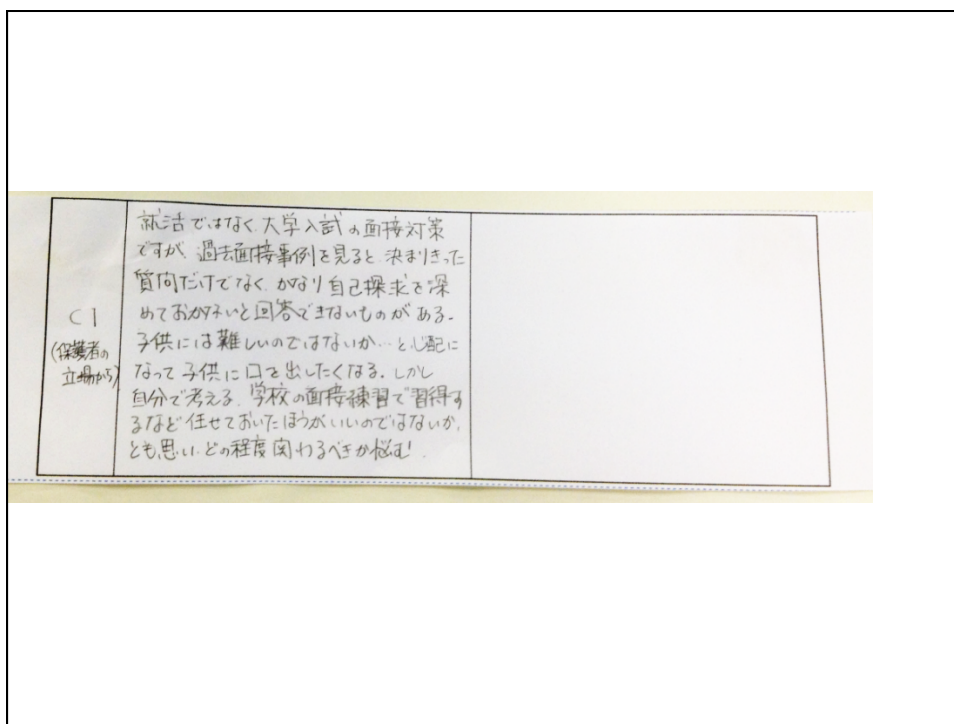 C1
(保護者の
立場から)
就活ではなく、大学入試の面接対策
ですが、過去面接事例を見ると、決まりきった
質問だけでなく、かなり自己探求を深
めておかないと回答できないものがある。
子供には難しいのではないか…と心配に
なって子供に口を出したくなる。しかし
自分で考える、学校の面接練習で習得す
るなど任せておいたほうがいいのではないか、
とも思い、どの程度関わるべきか悩む!